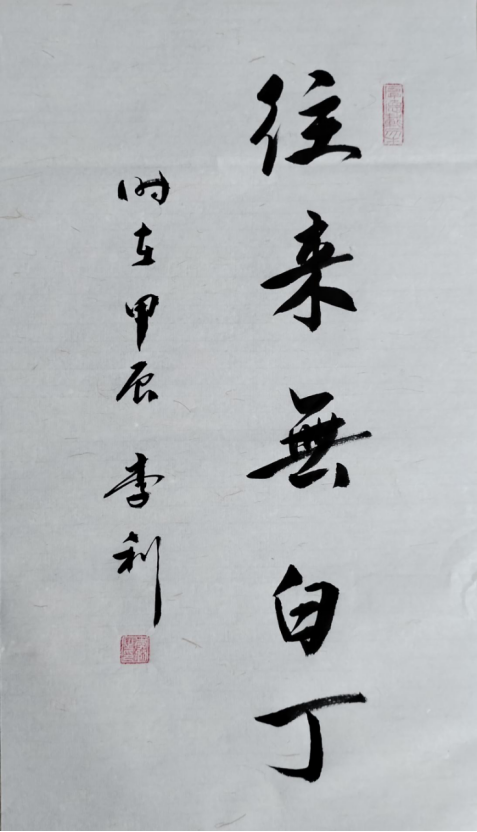 往来無白丁
时在甲辰 李利